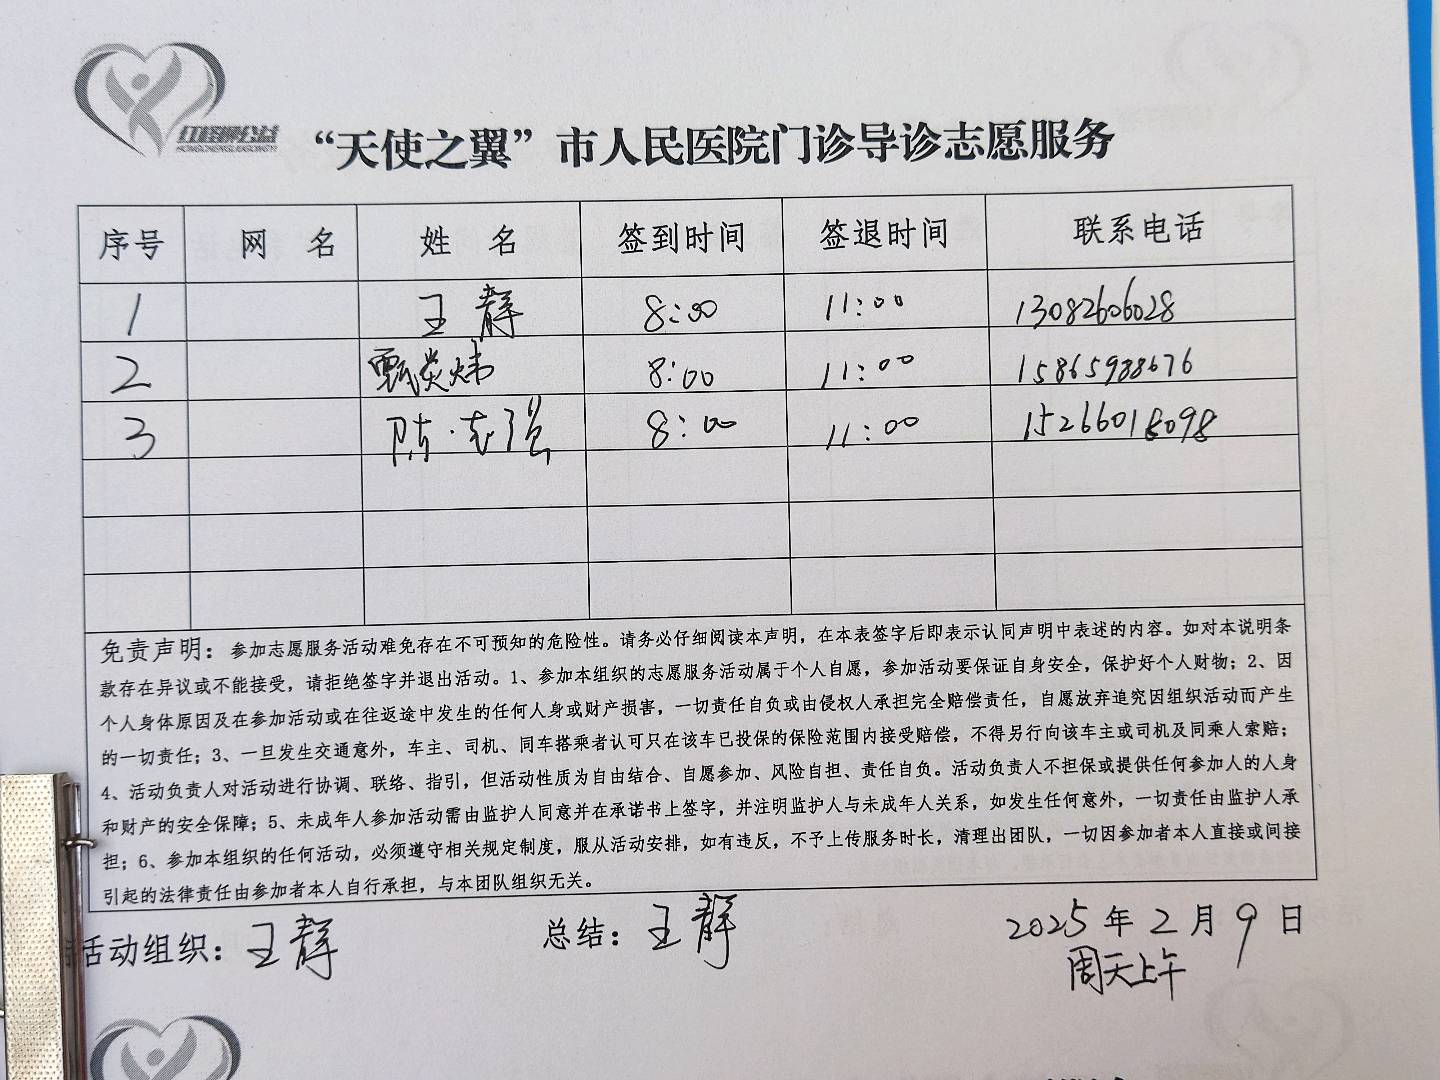 红橙狮公益
HONGCHENGSHIGONGYI
“天使之翼”市人民医院门诊导诊志愿服务
序号 网 名 姓 名 签到时间 签退时间 联系电话
1 王静 8:00 11:00 13082606028
2 甄炎炜 8:00 11:00 15865938676
3 陈志强 8:00 11:00 15266018098
免责声明：参加志愿服务活动难免存在不可预知的危险性。请务必仔细阅读本声明，在本表签字后即表示认同声明中表述的内容。如对本说明条
款存在异议或不能接受，请拒绝签字并退出活动。1、参加本组织的志愿服务活动属于个人自愿，参加活动要保证自身安全，保护好个人财物；2、因
个人身体原因及在参加活动或在往返途中发生的任何人身或财产损害，一切责任自负或由侵权人承担完全赔偿责任，自愿放弃追究因组织活动而产生
的一切责任；3、一旦发生交通意外，车主、司机、同车搭乘者认可只在该车已投保的保险范围内接受赔偿，不得另行向该车主或司机及同乘人索赔；
4、活动负责人对活动进行协调、联络、指引，但活动性质为自由结合、自愿参加、风险自担、责任自负。活动负责人不担保或提供任何参加人的人身
和财产的安全保障；5、未成年人参加活动需由监护人同意并在承诺书上签字，并注明监护人与未成年人关系，如发生任何意外，一切责任由监护人承
担；6、参加本组织的任何活动，必须遵守相关规定制度，服从活动安排，如有违反，不予上传服务时长，清理出团队，一切因参加者本人直接或间接
引起的法律责任由参加者本人自行承担，与本团队组织无关。
活动组织：王静 总结：王静 2025年2月9日
周天上午